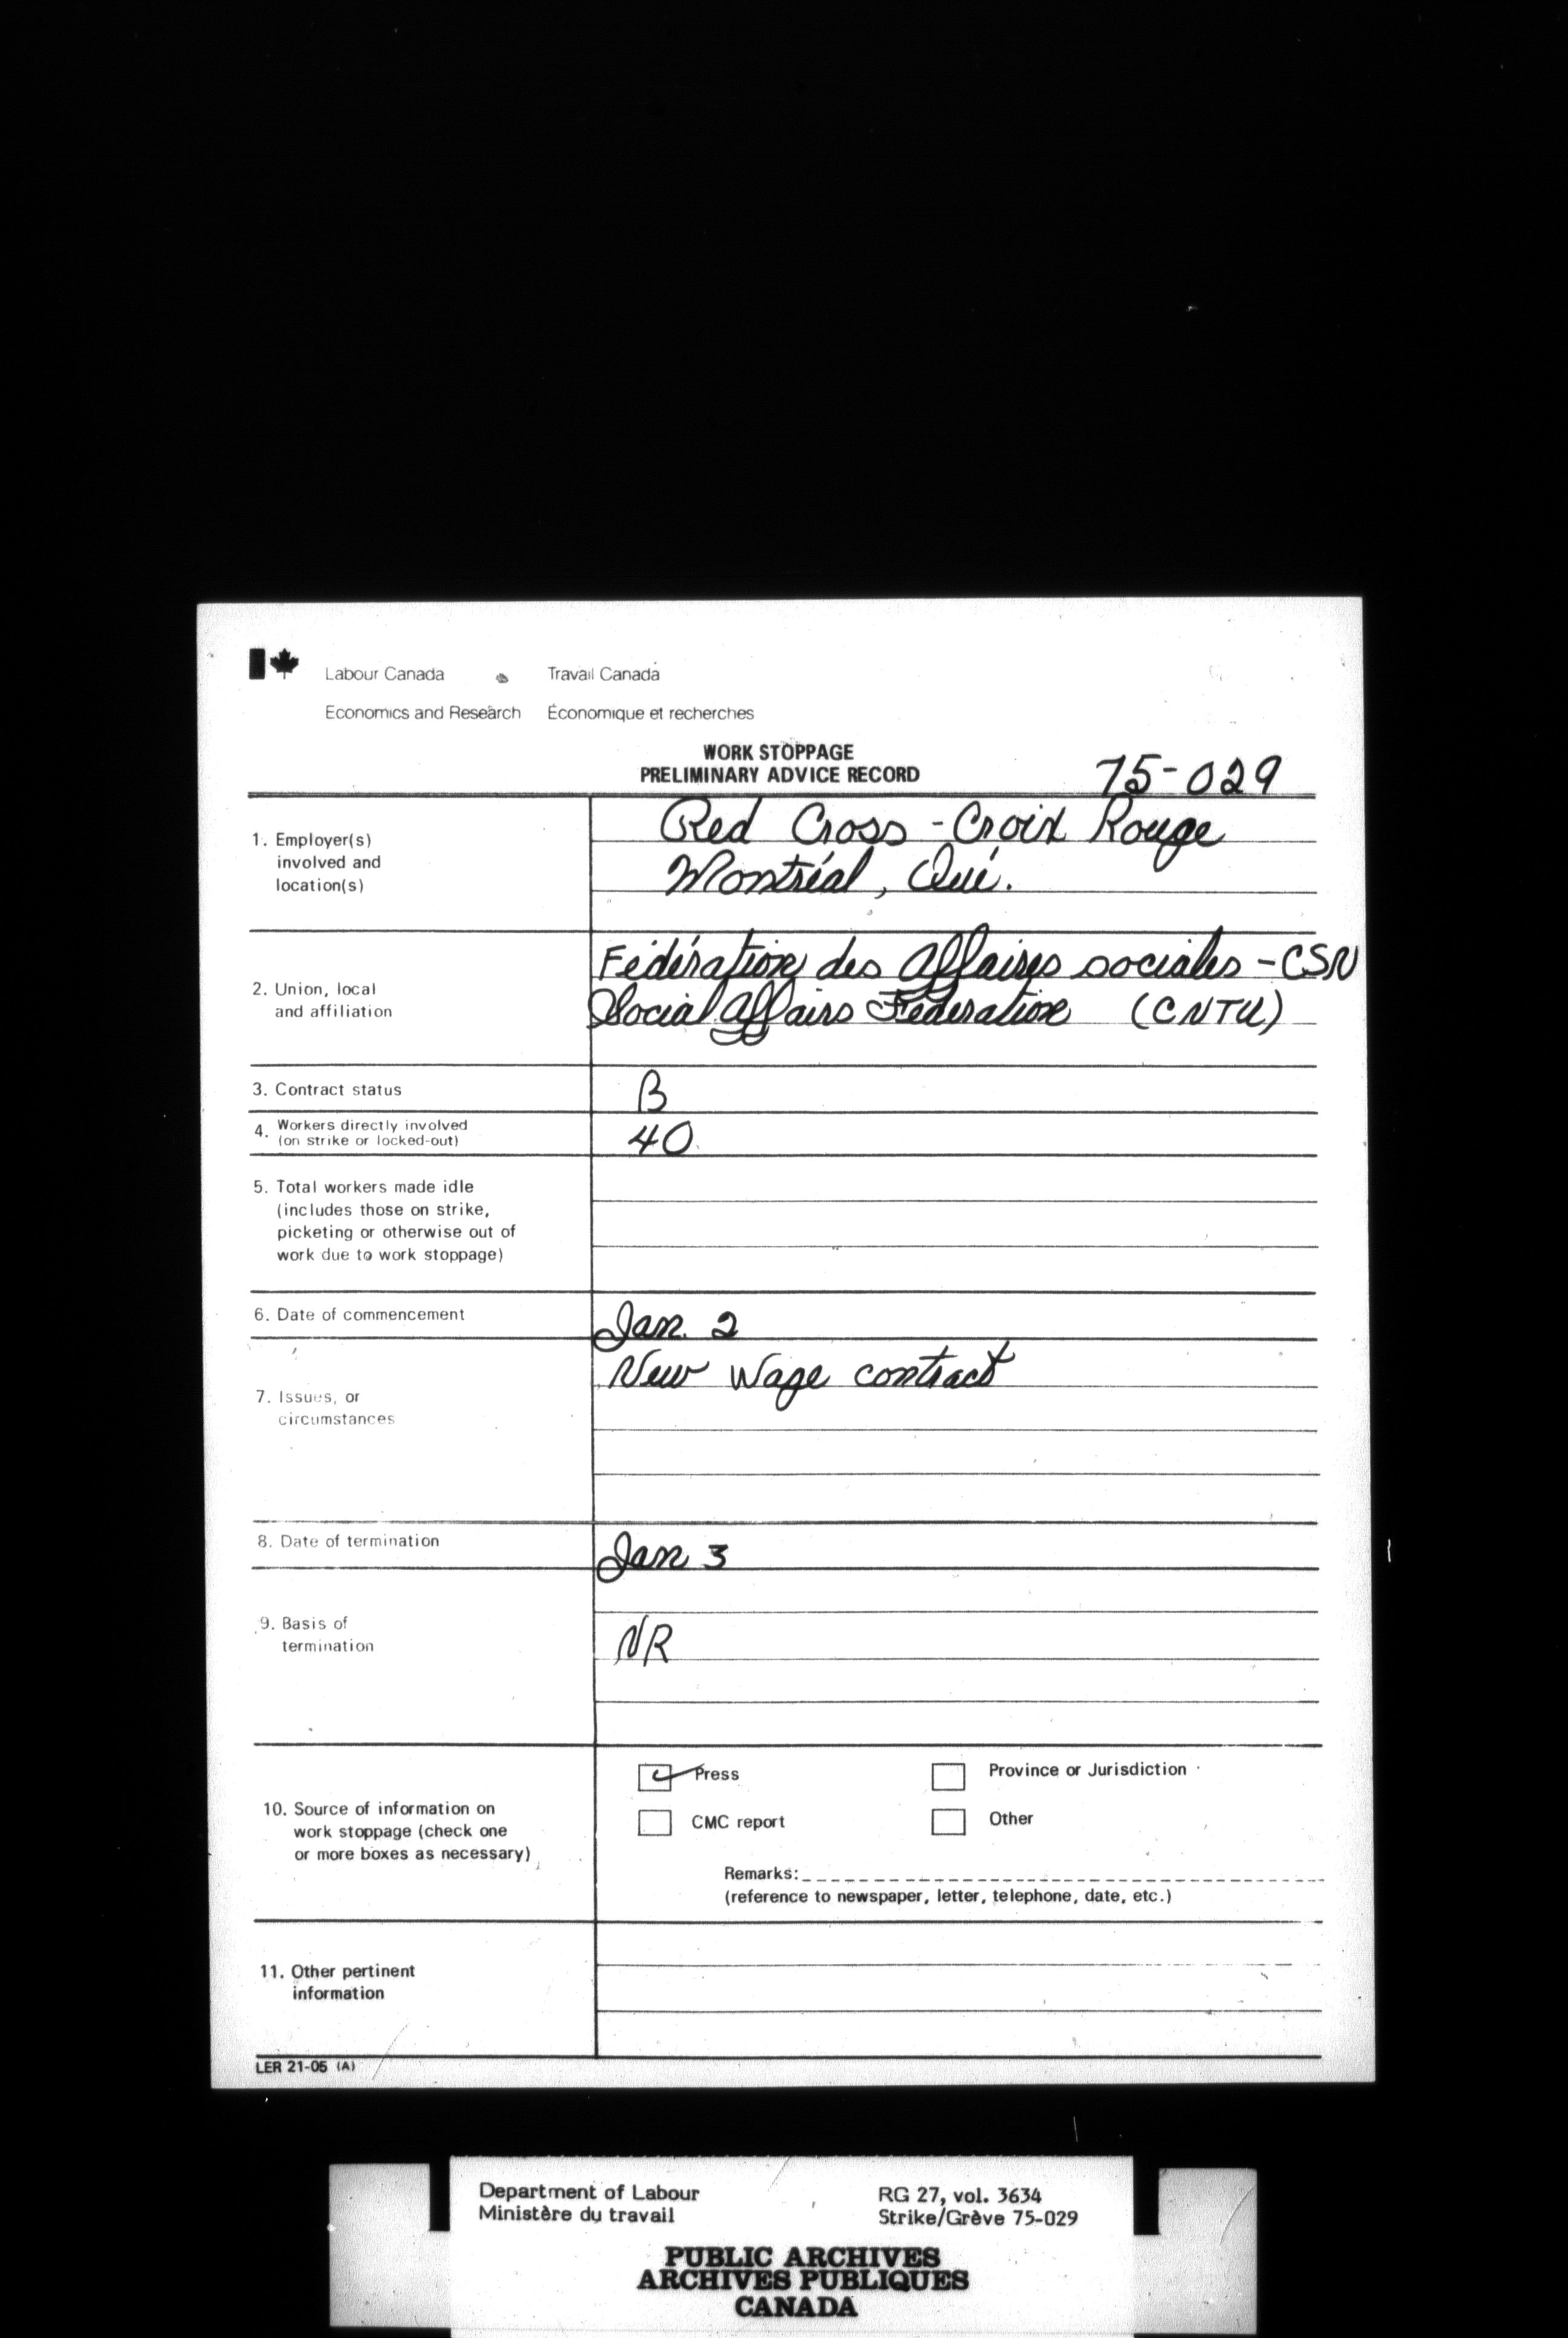 Labour Canada Travail Canada
Economics and Research Économique et recherches
WORK STOPPAGE
PRELIMINARY ADVICE RECORD
75-029
1. Employer(s)
involved and
location(s)
Red Cross - Croix Rouge
Montréal, Qué.
2. Union, local
and affiliation
Fédération des Affaires sociales - CSN
Social Affairs Federation (CNTU)
3. Contract status
B
4. Workers directly involved
(on strike or locked-out)
40
5. Total workers made idle
(includes those on strike,
picketing or otherwise out of
work due to work stoppage)
6. Date of commencement
Jan. 2
7. Issues, or
circumstances
New Wage contract
8. Date of termination
Jan 3
9. Basis of
termination
NR
10. Source of information on
work stoppage (check one
or more boxes as necessary)
Press
Province or Jurisdiction
CMC report
Other
Remarks:
(reference to newspaper, letter, telephone, date, etc.)
11. Other pertinent
information
LER 21-05 (A)
Department of Labour
Ministère du travail
RG 27, vol. 3634
Strike/Grève 75-029
PUBLIC ARCHIVES
ARCHIVES PUBLIQUES
CANADA